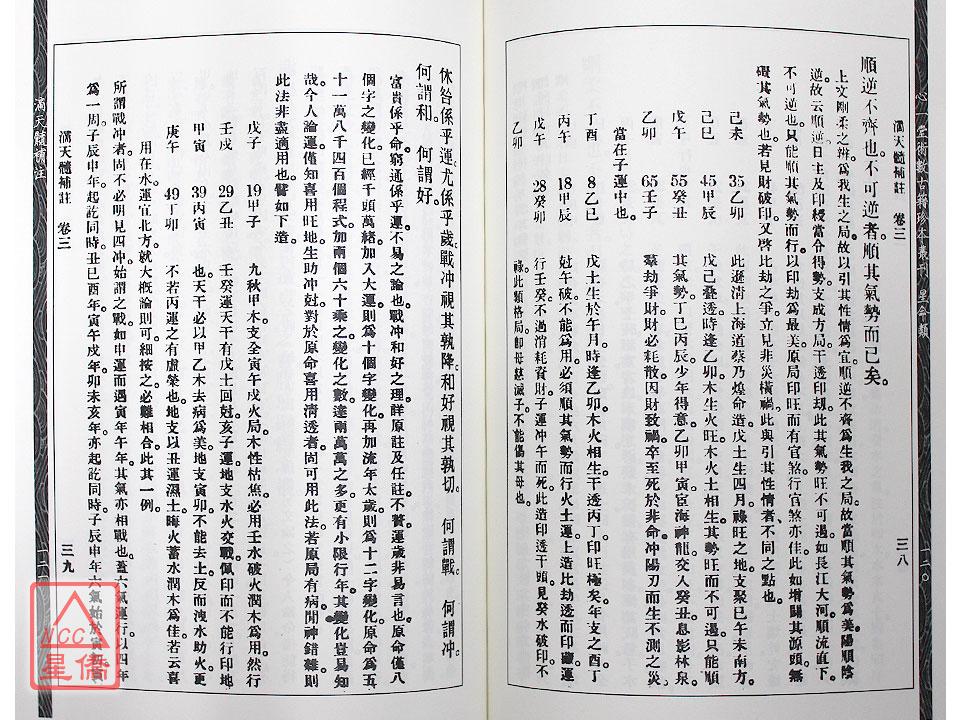 心一堂術數古籍珍本叢刊　星命類
滴天髓補註　卷三
三八
一二〇
順逆不齊也。不可逆者。順其氣勢而已矣。
上文剛柔之辨。為我生之局。故以引其性情為宜。順逆不齊。為生我之局。故當順其氣勢為美。陽順陰
逆。故云順逆。日主及印綬當令得勢。支成方局。干透印刦。此其氣勢旺不可遏。如長江大河。順流直下。
不可逆也。只能順其氣勢而行。以印劫為最美。原局印旺而有官煞。行官煞亦佳。此如增關其源頭。無
礙其氣勢也。若見財破印。又啓比劫之爭。立見非災橫禍。此與引其性情者。不同之點也。
己未　35乙卯　此遜清上海道蔡乃煌命造。戊土生四月。祿旺之地。支聚巳午未南方。
己巳　45甲辰　戊己叠透。時逢乙卯。木生火旺。木火土相生。其勢旺而不可遏。只能順
戊午　55癸丑　其氣勢。丁巳丙辰。少年得意。乙卯甲寅。宦海神龍。交入癸丑。息影林泉。
乙卯　65壬子　羣劫爭財。財必耗散。因財致禍。卒至死於非命。冲陽刃而生不測之災
當在子運中也。
丁酉　8乙巳　戊土生於午月。時逢乙卯。木火相生。干透丙丁。印旺極矣。年支之酉。丁
丙午　18甲辰　尅午破。不能為用。必須順其氣勢而行火土運。上造比劫透而印藏。運
戊午　28癸卯　行壬癸。不過消耗資財。子運冲午而死。此造印透干頭。見癸水破印。不
乙卯　祿。此類格局。即母慈滅子。不能傷其母也。
休咎係乎運。尤係乎歲。戰冲視其孰降。和好視其孰切。　何謂戰　何謂冲。
何謂和。　何謂好。
富貴係乎命。窮通係乎運。不易之論也。戰冲和好之理。詳原註及任註。不贅。運歲非易言也。原命僅八
個字之變化。已經千頭萬緒。加入大運。則為十個字變化。再加流年太歲。則為十二字變化。原命為五
十一萬八千四百個程式。加兩個六十乘之。變化之數。達兩萬萬之多。更有小限行年。其變化豈易知
哉。今人論運。僅知喜用旺地。生助冲尅。對於原命喜用清透者。固可用此法。若原局有病。閒神錯雜。則
此法非盡適用也。譬如下造。
戊子　19甲子　九秋甲木。支全寅午戌火局。木性枯焦。必用壬水破火潤木為用。然行
壬戌　29乙丑　壬癸運。天干有戊土回尅。亥子運。地支水火交戰。佩印而不能行印地
甲寅　39丙寅　也。天干必以甲乙木去病為美。地支寅卯不能去土。反而洩水助火。更
庚午　49丁卯　不若丙運之有虛榮也。地支以丑運濕土。晦火蓄水潤木為佳。若云喜
用在水。運宜北方。就大概論則可。細按之必難相合。此其一例。
所謂戰冲者。固不必明見四冲。始謂之戰。如申運而遇寅年午年。其氣亦相戰也。蓋六氣運行。以四年
為一周。子辰申年。起訖同時。丑巳酉年。寅午戌年。卯未亥年。亦起訖同時。子辰申年。六氣始於寅初。
滴天髓補註　卷三
三九
滴天髓補註
NCC
星僑